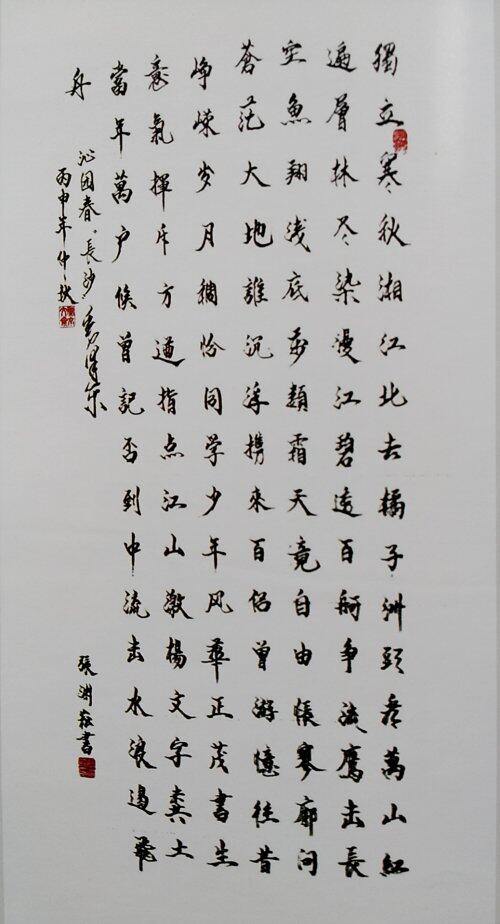 獨立寒秋湘江北去橘子洲頭看萬山紅
遍層林尽染漫江碧透百舸争流鹰击長
空魚翔浅底万類霜天竟自由悵寥廓问
蒼茫大地誰沉浮携來百侣曾游憶往昔
峥嵘岁月稠恰同学少年风華正茂書生
意氣揮斥方遒指点江山激楊文字粪土
當年萬户候曾記否到中流击水浪遏飛
舟
沁园春。長沙 毛泽东
丙申年仲秋
張渊書